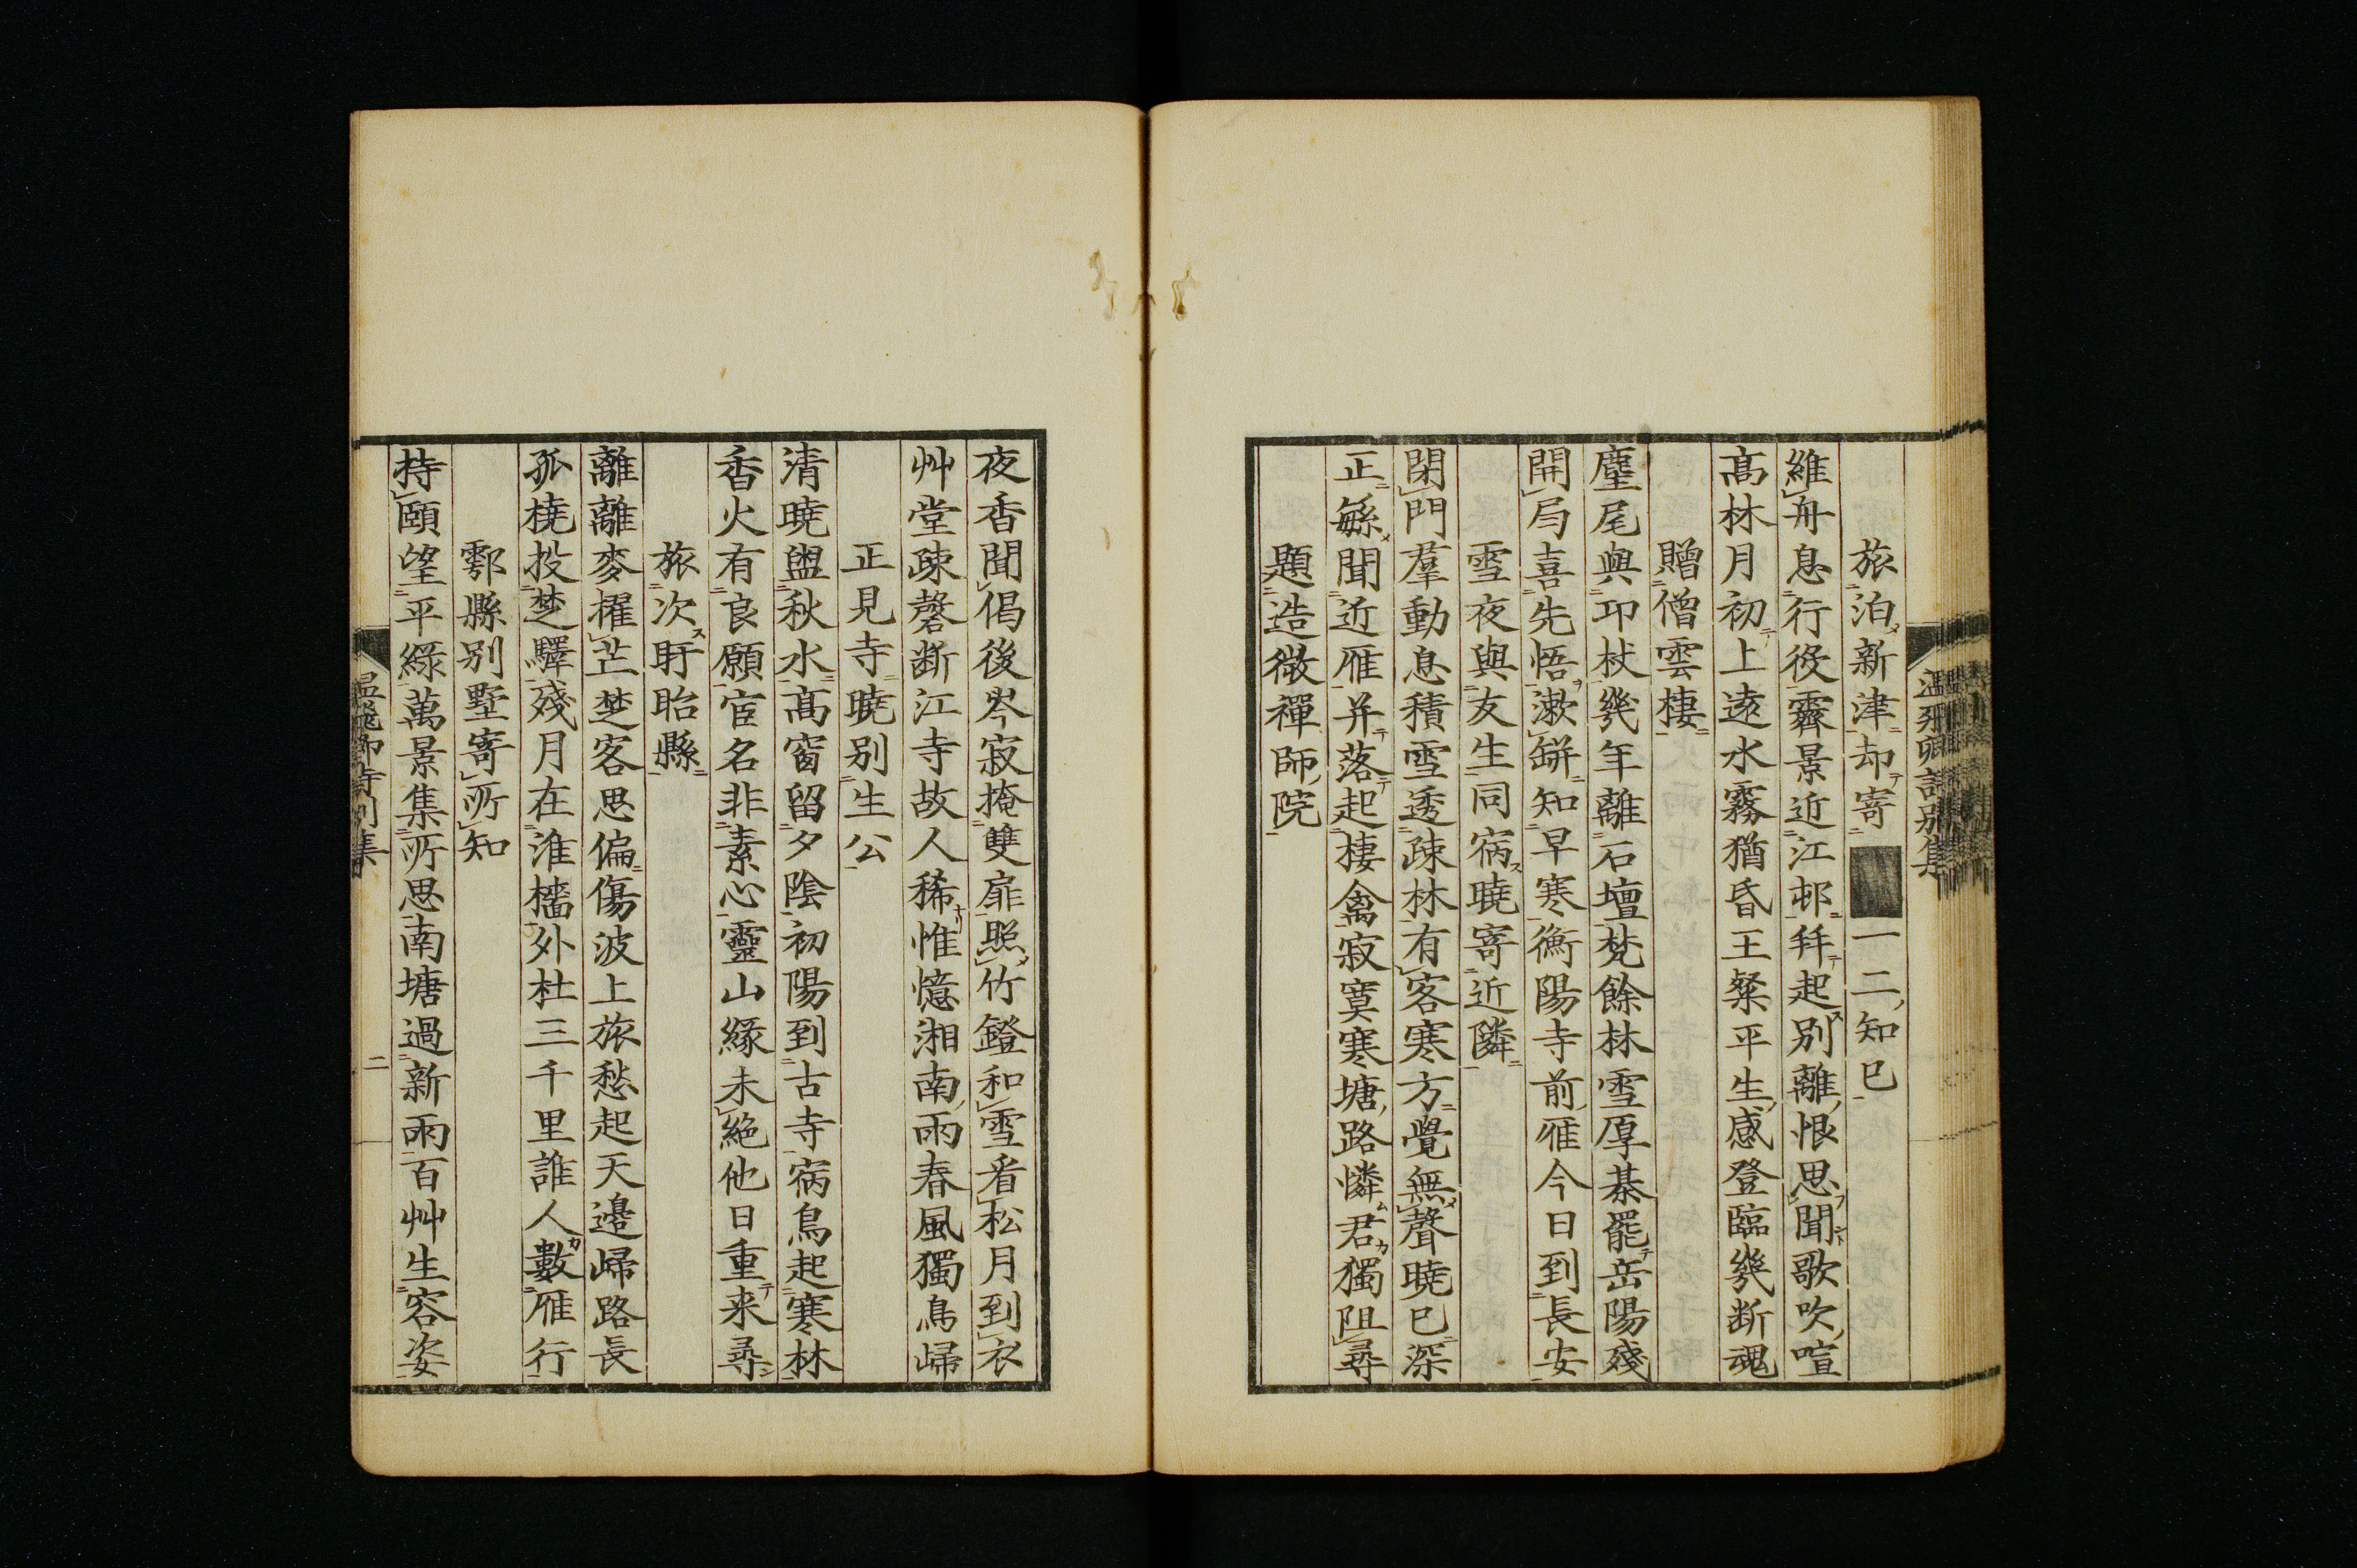 溫飛卿詩別集
旅泊新津却寄一二知已
維舟息行役霽景近江邨拜起別離恨思聞歌吹喧
高林月初上遠水霧猶昏王粲平生感登臨幾斷魂
贈僧雲棲
麈尾與卭杖幾年離石壇梵餘林雪厚棊罷岳陽殘
開卷喜先悟漱缾知早寒衡陽寺前雁今日到長安
雪夜與友生同宿曉寄近隣
閉門羣動息積雪透疎林有客寒方覺無聲曉已深
正繇聞近雁并落起棲禽寂寞寒塘路憐君獨阻尋
題造微禪師院
夜香聞偈後岑寂掩雙扉照竹鐙和雪看松月到衣
艸堂疎磬斷江寺故人稀惟憶湘南雨春風獨鳥歸
正見寺曉別生公
清曉盥秋水高窗留夕陰初陽到古寺宿鳥起寒林
香火有良願宦名非素心靈山緣未絕他日重来尋
旅次盱眙縣
離離麥櫂芒楚客思偏傷波上旅愁起天邊歸路長
孤橈投楚驛殘月在淮檣外杜三千里誰人數雁行
鄠縣別墅寄所知
持頤望平綠萬景集所思南塘過新雨百艸生容姿
溫飛卿詩別集 二